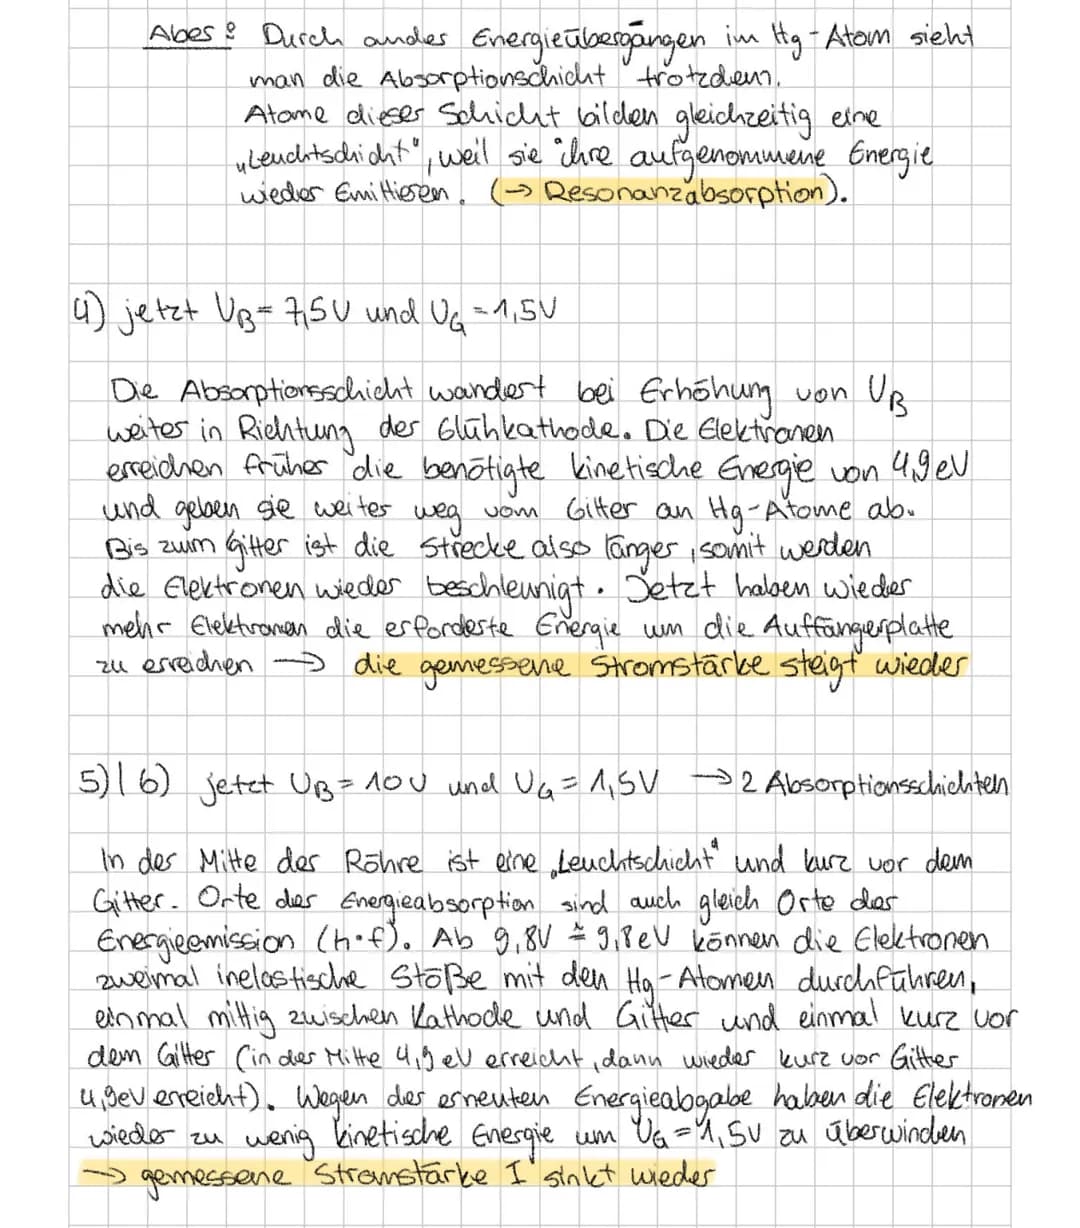 Aber: Durch andere Energieübergängen im Hg-Atom sieht
man die Absorptionschicht trotzdem.
Atome dieser Schicht bilden gleichzeitig eine
„Leuchtschicht", weil sie ihre aufgenommene Energie
wieder Emittieren. (→ Resonanzabsorption).
4) jetzt UB = 7,5V und UG = 1,5V
Die Absorptionsschicht wandert bei Erhöhung von UB
weiter in Richtung der Glühkathode. Die Elektronen
erreichen früher die benötigte kinetische Energie von 4,9eV
und geben sie weiter weg vom Gitter an Hg-Atome ab.
Bis zum Gitter ist die Strecke also länger, somit werden
die Elektronen wieder beschleunigt. Jetzt haben wieder
mehr Elektronen die erforderte Energie um die Auffängerplatte
zu erreichen → die gemessene Stromstärke steigt wieder
5)|6) jetzt UB = 10V und UG = 1,5V → 2 Absorptionsschichten
In der Mitte der Röhre ist eine „Leuchtschicht" und kurz vor dem
Gitter. Orte der Energieabsorption sind auch gleich Orte der
Energieemission (h·f). Ab 9,8V ≙ 9,8eV können die Elektronen
zweimal inelastische Stöße mit den Hg-Atomen durchführen,
einmal mittig zwischen Kathode und Gitter und einmal kurz vor
dem Gitter (in der Mitte 4,9eV erreicht, dann wieder kurz vor Gitter
4,9eV erreicht). Wegen der erneuten Energieabgabe haben die Elektronen
wieder zu wenig kinetische Energie um UG = 1,5V zu überwinden
→ gemessene Stromstärke I sinkt wieder